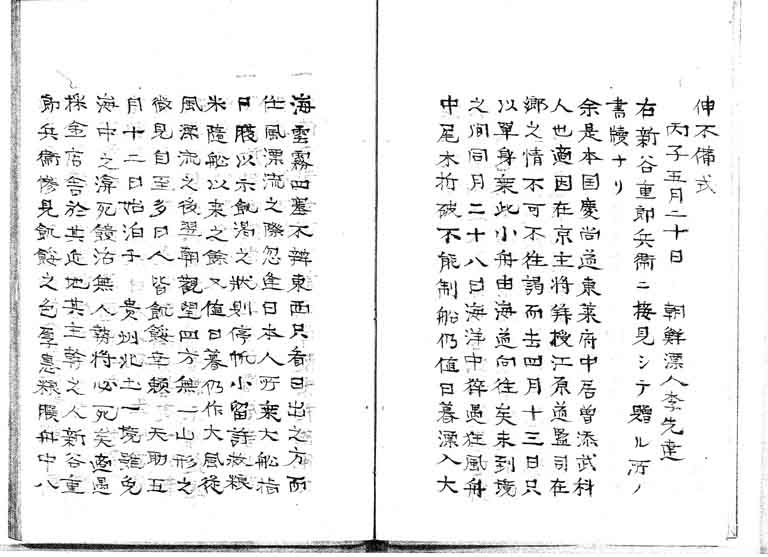 伸不備弐
丙子五月二十日 朝鮮漂人李先達
右新谷重郎兵衞ニ接見シテ贈ル所ノ
書牘ナリ
余是本国慶尚道東萊府中居曽添武科
人也適因在京主将 授江原道監司在
郷之情不可不往謁而去四月十三日只
以単身乗此小舟由海道向往矣未到境
之間同月二十八日海洋中猝遇狂風舟
中尾木折破不能制船仍値日暮漂入大
海雲霧四塞不辨東西只看日出之方而
任風漂流之際忽逢日本人所乗大船指
口腹以示飢渇之状則停帆小留許救粮
米随船以来之餘又値日暮仍作大風後
風漂流之後翌朝観望四方無一山形之
微見自至多日人皆飢餒幸頼 天助五
月十二日始泊于 貴州北土一境雖免
海中之 死饑治無人勢将必死矣適遇
採金店舎於其近地其主幹之人新谷重
郎兵衞修見飢餒之色厚恵粮饌舟中八